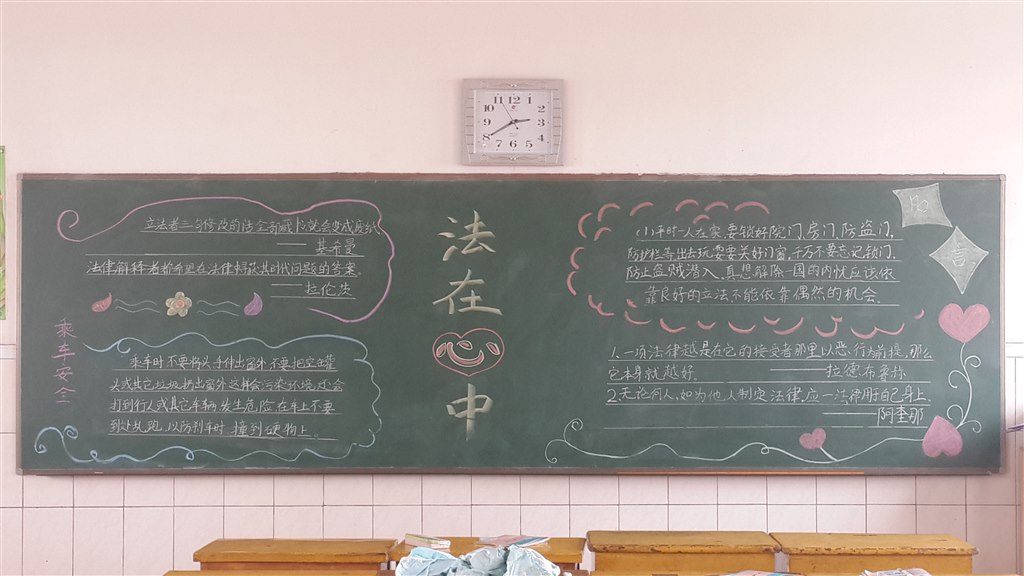 11 12 1
10 2
9 3
8 4
7 6 5
立法者三句修改的话全部藏书就会变成废纸
—— 基希曼
法律解释者都希望在法律中寻获其时代问题的答案。
—— 拉伦茨
乘车安全
乘车时不要将头手伸出窗外不要把空罐
头或其它垃圾扔出窗外这样会污染环境,还会
打到行人或其它车辆,发生危险,在车上不要
到处乱跑,以防刹车时,撞到硬物上。
法在心中
(1)平时一人在家,要锁好院门,房门,防盗门,
防护栏等出去玩要关好门窗,千万不要忘记锁门,
防止盗贼潜入,真想解除一国的内忧应该依
靠良好的立法不能依靠偶然的机会.
名言
1.一项法律越是在它的接受者那里以恶行为前提,那么
它本身就越好。 —— 拉德布鲁赫
2.无论何人,如为他人制定法律,应一法律用于自己身上.
—— 阿奎那